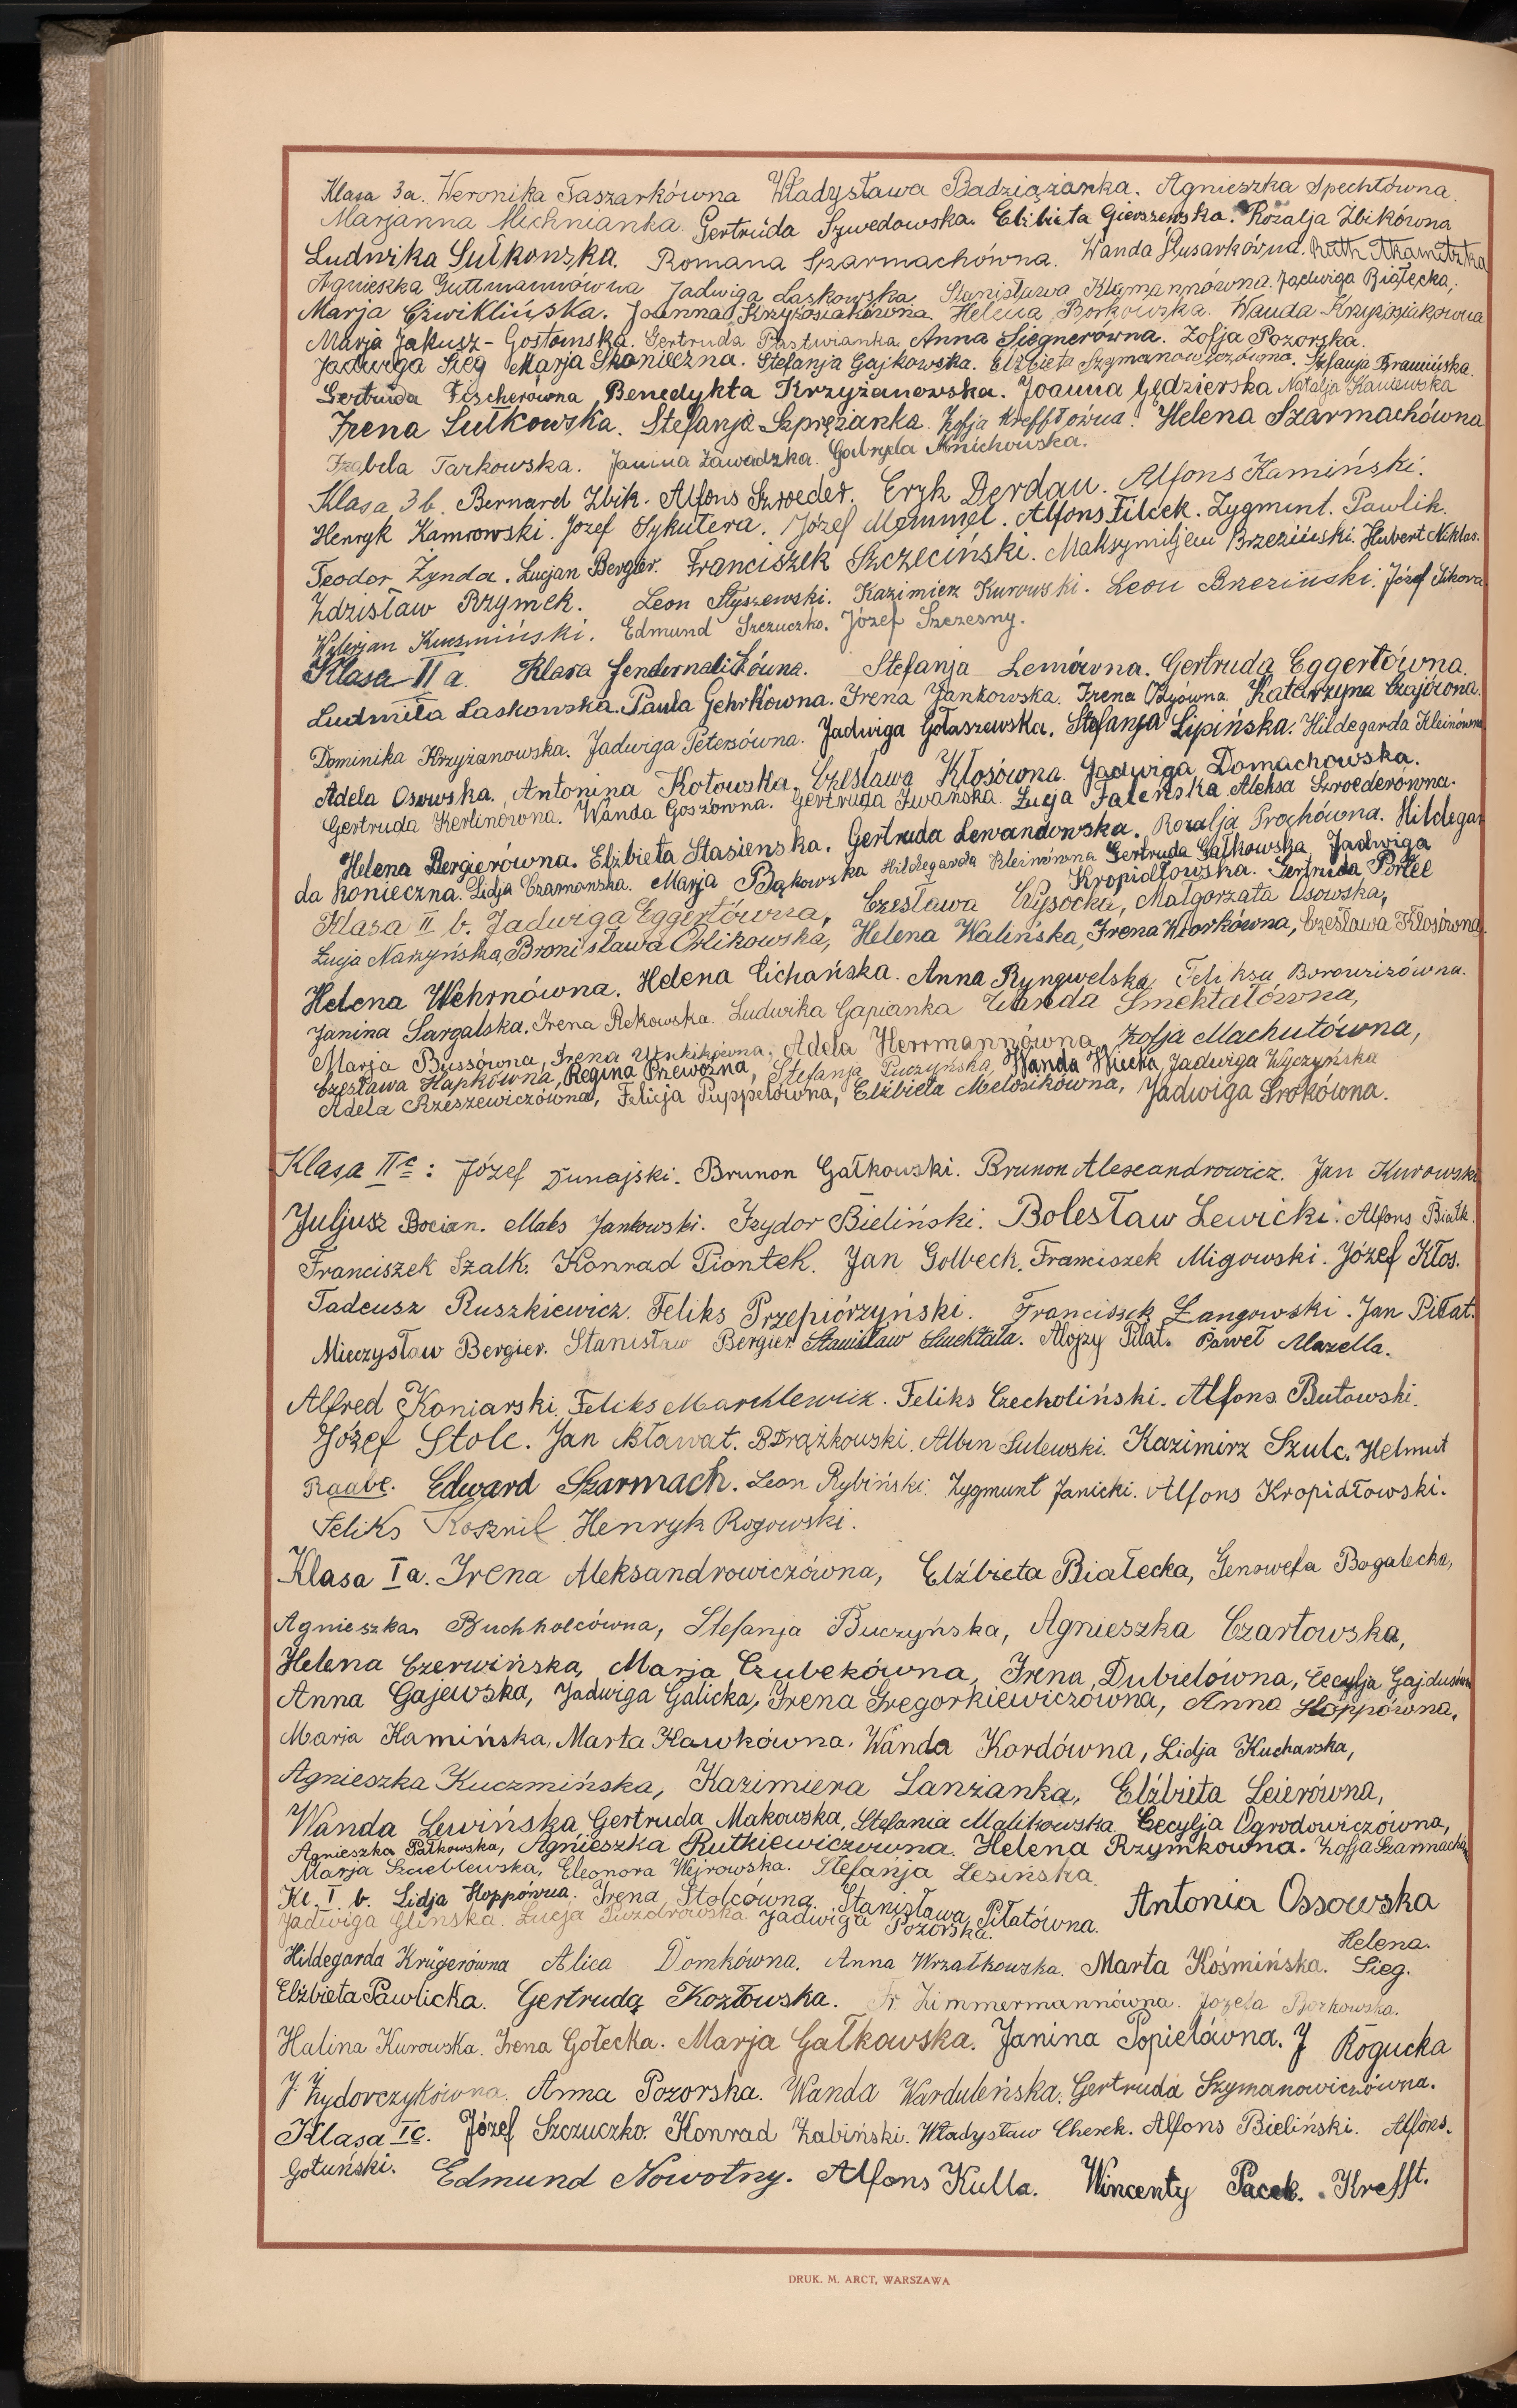 Klasa 3a. Weronika Taszarkówna Władysława Badziążanka. Agnieszka Spechtówna
Marjanna Michnianka. Gertruda Szwedowska. Elżbieta Gierszewska. Rozalja Żbikówna
Ludwika Sulkowska. Romana Szarmachówna. Wanda Ślusarkówna. Ruth
Agnieszka Guttmannówna Jadwiga Laskowska. Stanisława Klugmannówna. Jadwiga Białecka.
Marja Ćwiklińska. Joanna Krzyżosiakówna. Helena Borkowska. Wanda Krzyżosiakówna
Marja Jakusz-Gostomska. Gertruda Pastwianka. Anna Siegnerówna. Zofja Pozorska.
Jadwiga Sieg Marja Skonieczna. Stefanja Gajkowska. Elżbieta Szymanowiczówna. Stefanja
Gertruda Fischerówna Benedykta Krzyżanowska. Joanna Gędzierska Natalja Kaniewska
Irena Sułkowska. Stefanja Szprężanka. Zofja Krefftówna. Helena Szarmachówna
Izabela Tarkowska. Janina Zawadzka. Gabryela Mnichowska.
Klasa 3b. Bernard Żbik. Alfons Szroeder. Eryk Derdau. Alfons Kamiński.
Henryk Kamrowski. Józef Sykutera. Józef Memmel. Alfons Filcek. Zygmunt. Pawlik.
Teodor Żynda. Lucjan Bergier. Franciszek Szczeciński. Maksymiljan Brzeziński. Hubert Niklas.
Zdzisław Rzymek. Leon Słyszewski. Kazimierz Kurowski. Leon Brzeziński. Józef Sikora
Walerjan Kuczmiński. Edmund Szczuczko. Józef Szczesny.
Klasa II a. Klara Stefanja Lemówna. Gertruda Eggertówna.
Ludmiła Laskowska. Paula Gehrkówna. Irena Jankowska. Irena Ożyówna. Katarzyna Czajówna.
Dominika Krzyżanowska. Jadwiga Petersówna. Jadwiga Gołaszewska. Stefanja Lipińska. Hildegarda Kleinówna
Adela Osowska. Antonina Kotowska. Czesława Kłosówna. Jadwiga Domachowska.
Gertruda Kerlinówna. Wanda Goszówna. Gertruda Iwańska. Łucja Faleńska Aleksa Szroederówna.
Helena Bergierówna. Elżbieta Stasienska. Gertruda Lewandowska. Rozalja Prochówna. Hildegar
da Konieczna. Lidja Czarnowska. Marja Bąkowska Hildegarda Kleinówna Gertruda Gałkowska Jadwiga
Kropidłowska. Gertruda Porłee
Klasa II b. Jadwiga Eggertówna, Czesława Wysocka, Małgorzata Osowska,
Łucja Narzyńska, Bronisława Orlikowska, Helena Walińska, Irena Wiorkówna, Czesława Kłosówna.
Helena Wehrnówna. Helena Cichańska. Anna Ryngwelska Feliksa Borowiczówna.
Janina Sargalska. Irena Rekowska. Ludwika Gapianka Wanda Smektałówna,
Marja Bussówna, Irena Adela Herrmannówna, Zofja Machutówna,
Czesława Hapkówna, Regina Przewoźna, Stefanja Puczyńska, Wanda Wicka, Jadwiga Wyczyńska
Adela Rzeszewiczówna, Felicja Puppelówna, Elżbieta Melosikówna, Jadwiga Srokówna.
Klasa IIc: Józef Dunajski. Brunon Gałkowski. Brunon Alexandrowicz. Jan Kurowski
Juljusz Bocian. Maks Jankowski. Izydor Bieliński. Bolesław Lewicki. Alfons Białk.
Franciszek Szalk. Konrad Piontek. Jan Golbeck. Franciszek Migowski. Józef Kłos.
Tadeusz Ruszkiewicz. Feliks Przepiórzyński. Franciszek Langowski. Jan Piłat.
Mieczysław Bergier. Stanisław Bergier. Stanisław Smektała. Alojzy Piłat. Paweł Mazella.
Alfred Koniarski. Feliks Marchlewicz. Feliks Czecholiński. Alfons Butowski.
Józef Stolc. Jan Bławat. B Drążkowski. Albin Sulewski. Kazimirz Szulc. Helmut
Raabe. Edward Szarmach. Leon Rybiński. Zygmunt Janicki. Alfons Kropidłowski.
Feliks Kosznil Henryk Rogowski.
Klasa Ia. Irena Aleksandrowiczówna, Elżbieta Białecka, Genowefa Bogalecka,
Agnieszka Buchholcówna, Stefanja Buczyńska, Agnieszka Czartowska,
Helena Czerwińska, Marja Czubekówna, Irena Dubielówna, Cecylja Gajdusówna
Anna Gajewska, Jadwiga Galicka, Irena Gregorkiewiczówna, Anna Hoppówna,
Marja Kamińska, Marta Kawkówna. Wanda Kordówna, Lidja Kucharska,
Agnieszka Kuczmińska, Kazimiera Lanżanka, Elżbieta Leierówna,
Wanda Lewińska, Gertruda Makowska, Stefania Malikowska Cecylja Ogrodowiczówna,
Agnieszka Pałkowska, Agnieszka Rutkiewiczówna. Helena Rzymkowna. Zofja Szarmachówna
Marja Szreblewska, Eleonora Wejrowska. Stefanja Lesińska
Kl. I b. Lidja Hoppówna. Irena Stolcówna Stanisława Piłatówna. Antonia Ossowska
Jadwiga Glińska. Łucja Puzdrowska Jadwiga Pozorska.
Hildegarda Krügerówna Alica Domkówna. Anna Wrzałkowska. Marta Kośmińska. Helena. Sieg.
Elżbieta Pawlicka. Gertruda Kozłowska. Fr. Zimmermannówna. Józefa Borkowska.
Halina Kurowska. Irena Gołecka. Marja Gałkowska. Janina Popielówna. J Rogucka
J. Żydorczykówna. Anna Pozorska. Wanda Warduleńska. Gertruda Szymanowiczówna.
Klasa Ic. Józef Szczuczko. Konrad Żabiński. Władysław Cherek. Alfons Bieliński. Alfons.
Gotuński. Edmund Nowotny. Alfons Kulla. Wincenty Pacek. Krefft.
DRUK. M. ARCT, WARSZAWA